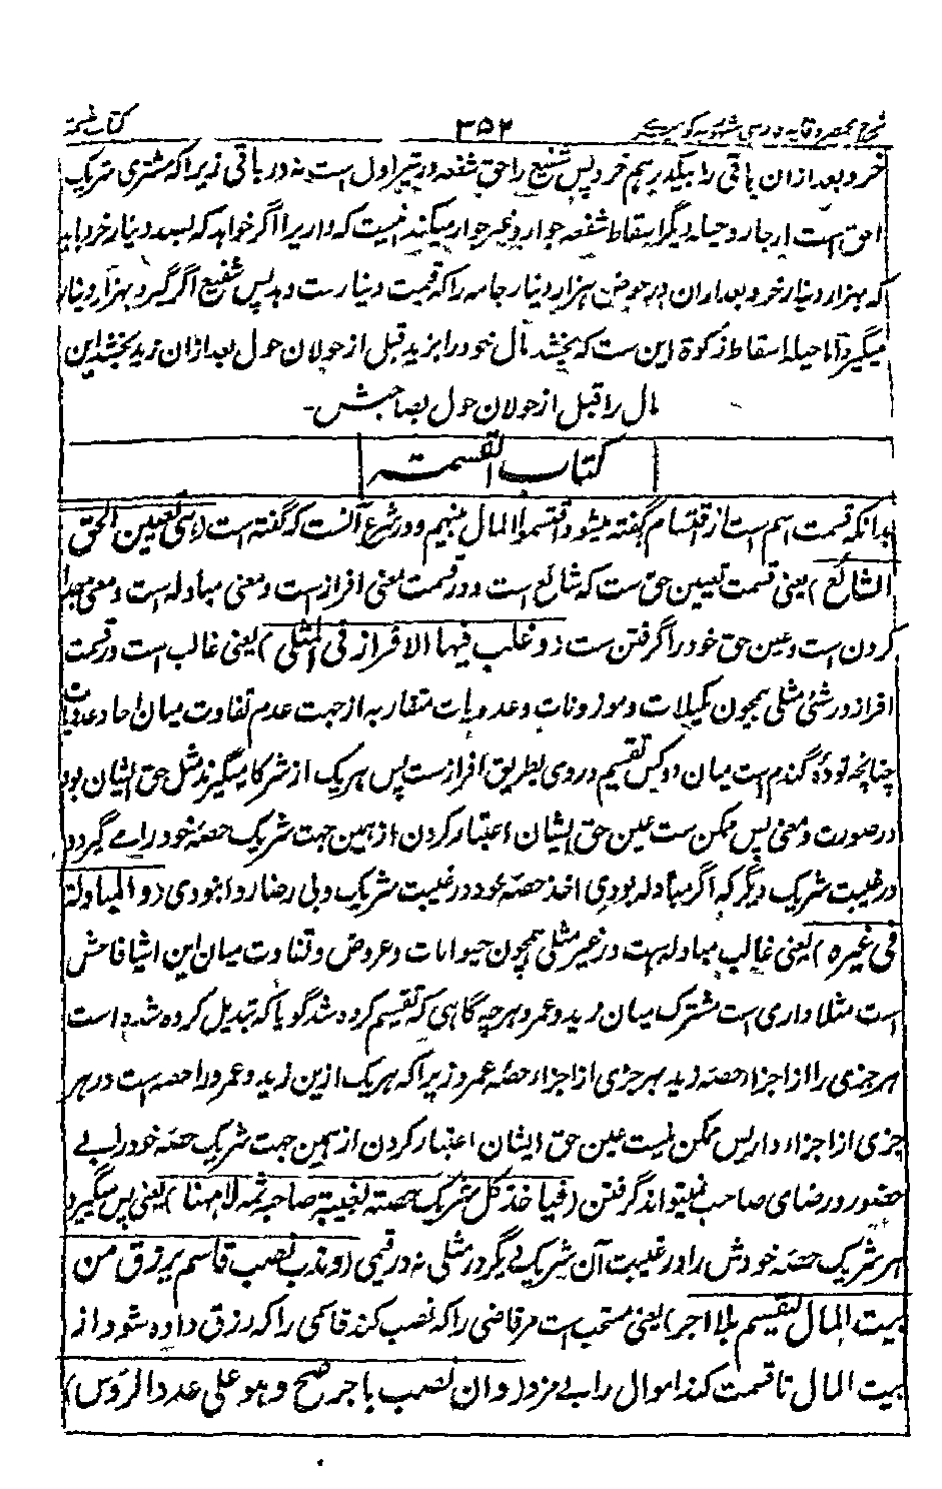 شرح مختصر وقایه فارسی
۳۵۲
کتاب القسمة
خرد بعد ازان باقی را بیکدرهم خرد پس شفیع را حق شفعه در تیر اول است نه در باقی زیرا که مشتری شریک
احق است از جار و حیله دیگر اسقاط شفعه جوار و غیر جوار میکند اینست که داریرا اگر خواهد که بصد دینار خرد باید
که بهزار دینار خرد بعد ازان در عوض هزار دینار جامه را که قیمت دینارست دهد پس شفیع اگر گیرد بهزار دینار
میگیرد اما حیله اسقاط زکوة این ست که بخشد مال خود را بزید قبل از حولان حول بعد ازان زید بخشد این
مال را قبل از حولان حول بصاحبش-
کتاب القسمة
بدانکه قسمت اسم است از اقتسام گفته میشود اقتسموا المال بینهم و در شرع آنست که گفته است (هی تعیین الحق
الشائع) یعنی قسمت تعیین حق ست که شائع است و در قسمت معنی افرازست و معنی مبادله است و معنی جدا
کردن است و عین حق خود را گرفتن ست (و غلب فیها الافراز فی المثلی) یعنی غالب است در قسمت
افراز در شئ مثلی همچون مکیلات و موزونات و عددیات متقاربه از جهت عدم تفاوت میان آحاد عددیات
چنانچه توده گندم است میان دوکس تقسیم در وی بطریق افرازست پس هر یک از شرکا میگیرند مثل حق ایشان بود
در صورت و معنی پس ممکن ست عین حق ایشان اعتبار کردن از همین جهت شریک حصه خود را می گیرد
در غیبت شریک دیگر که اگر مبادله بودی اخذ حصه خود در غیبت شریک و بی رضا روا نبودی (و المبادلة
فی غیره) یعنی غالب مبادله است در غیر مثلی همچون حیوانات و عروض و تفاوت میان این اشیا فاحش
است مثلا داری است مشترک میان زید و عمرو هر چه گاهی که تقسیم کرده شد گویا که تبدیل کرده شده است
هر جزی را از اجزاء حصه زید بهر جزی از اجزاء حصه عمرو زیرا که هر یک ازین زید و عمرو را حصه است در هر
جزی از اجزاء دار پس ممکن نیست عین حق ایشان اعتبار کردن از همین جهت شریک حصه خود را بے
حضور و رضای صاحب نمیتواند گرفتن (فیاخذ کل شریک حصته بغیبة صاحبه ثمه لا ههنا) یعنی پس میگیرد
هر شریک حصه خودش را در غیبت آن شریک دیگر در مثلی نه در قیمی (و ندب نصب قاسم یرزق من
بیت المال لیقسم بلا اجر) یعنی مستحب است مر قاضی را که نصب کند قاسمی را که رزق داده شود از
بیت المال تا قسمت کند اموال را بے مزد (و ان نصب باجر صح و هو علی عدد الرؤس)